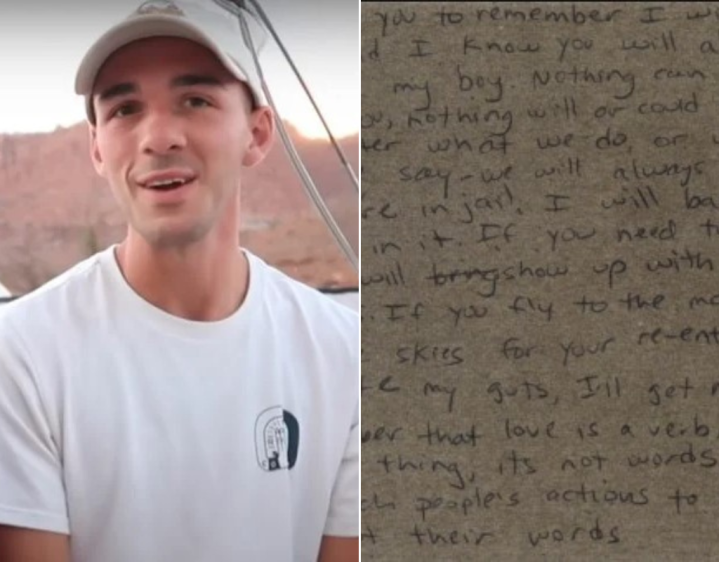 you to remember I
I know you will a
my boy. Nothing can
nothing will or could
what we do, or
say - we will always
in jail. I will ba
in it. If you need t
will show up with
If you fly to the mo
skies for your re-ent
my guts, I'll get
that love is a verb
thing, its not words
people's actions to
their words